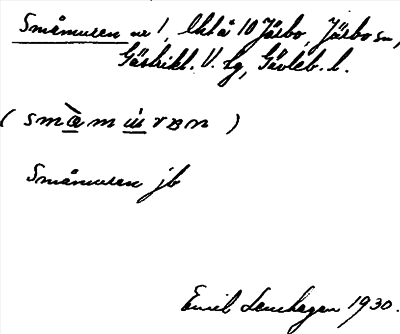 Småmuren nr 1, Ulvtå 10 Järbo, Järbo sn,
Gästrikl. V. tg, Gävleb. l.
( smàm ùrвn )
Småmuren jb
Emil Lenhagen 1930.